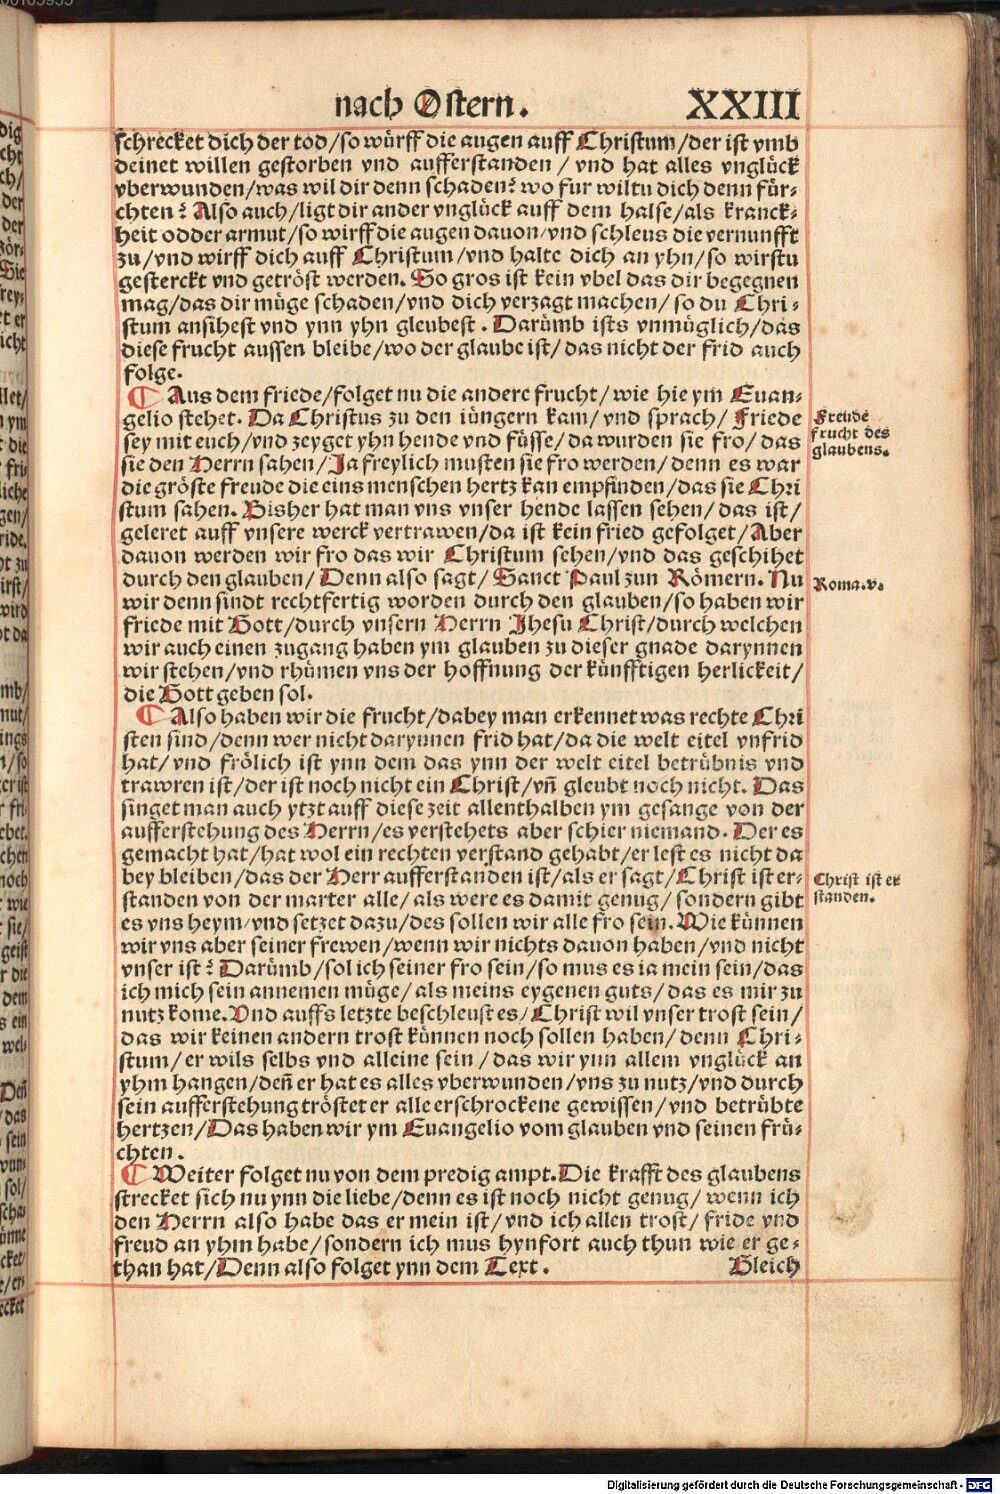 nach Ostern. XXIII
schrecket dich der tod/so würff die augen auff Christum/der ist vmb
deinet willen gestorben vnd aufferstanden/ vnd hat alles vnglück
vberwunden/was wil dir denn schaden? wo fur wiltu dich denn für-
chten? Also auch/ligt dir ander vnglück auff dem halse/als kranck-
heit odder armut/so wirff die augen dauon/vnd schleus die vernunfft
zu/vnd wirff dich auff Christum/vnd halte dich an yhn/so wirstu
gesterckt vnd getröst werden. So gros ist kein vbel das dir begegnen
mag/das dir müge schaden/vnd dich verzagt machen/ so du Chri-
stum ansihest vnd ynn yhn gleubest. Darümb ists vnmüglich/das
diese frucht aussen bleibe/wo der glaube ist/das nicht der frid auch
folge.
¶ Aus dem friede/folget nu die andere frucht/ wie hie ym Euan-
gelio stehet. Da Christus zu den jüngern kam/vnd sprach/ Friede
sey mit euch/vnd zeyget yhn hende vnd füsse/da wurden sie fro/das
sie den Herrn sahen/Ja freylich musten sie fro werden/denn es war
die gröste freude die eins menschen hertz kan empfinden/das sie Chri
stum sahen. Bisher hat man vns vnser hende lassen sehen/das ist/
geleret auff vnsere werck vertrawen/da ist kein fried gefolget/Aber
dauon werden wir fro das wir Christum sehen/vnd das geschihet
durch den glauben/ Denn also sagt/Sanct Paul zun Römern. Nu
wir denn sindt rechtfertig worden durch den glauben/so haben wir
friede mit Gott/durch vnsern Herrn Jhesu Christ/durch welchen
wir auch einen zugang haben ym glauben zu dieser gnade darynnen
wir stehen/vnd rhümen vns der hoffnung der künfftigen herlickeit/
die Gott geben sol.
¶ Also haben wir die frucht/dabey man erkennet was rechte Chri
sten sind/denn wer nicht darynnen frid hat/da die welt eitel vnfrid
hat/vnd frölich ist ynn dem das ynn der welt eitel betrübnis vnd
trawren ist/der ist noch nicht ein Christ/vñ gleubt noch nicht. Das
singet man auch ytzt auff diese zeit allenthalben ym gesange von der
aufferstehung des Herrn/es verstehets aber schier niemand. Der es
gemacht hat/hat wol ein rechten verstand gehabt/er lest es nicht da
bey bleiben/das der Herr aufferstanden ist/als er sagt/Christ ist er-
standen von der marter alle/als were es damit genug/sondern gibt
es vns heym/vnd setzet dazu/des sollen wir alle fro sein. Wie künnen
wir vns aber seiner frewen/wenn wir nichts dauon haben/vnd nicht
vnser ist? Darümb/sol ich seiner fro sein/so mus es ia mein sein/das
ich mich sein annemen müge/als meins eygenen guts/das es mir zu
nutz kome. Vnd auffs letzte beschleust es/Christ wil vnser trost sein/
das wir keinen andern trost künnen noch sollen haben/denn Chri-
stum/er wils selbs vnd alleine sein/das wir ynn allem vnglück an
yhm hangen/deñ er hat es alles vberwunden/vns zu nutz/vnd durch
sein aufferstehung tröstet er alle erschrockene gewissen/vnd betrübte
hertzen/Das haben wir ym Euangelio vom glauben vnd seinen frü-
chten.
¶ Weiter folget nu von dem predig ampt. Die krafft des glaubens
strecket sich nu ynn die liebe/denn es ist noch nicht genug/ wenn ich
den Herrn also habe das er mein ist/vnd ich allen trost/fride vnd
freud an yhm habe/sondern ich mus hynfort auch thun wie er ge-
than hat/Denn also folget ynn dem Text. Gleich
Freude
frucht des
glaubens.
Roma.v.
Christ ist er
standen.
Digitalisierung gefördert durch die Deutsche Forschungsgemeinschaft - DFG